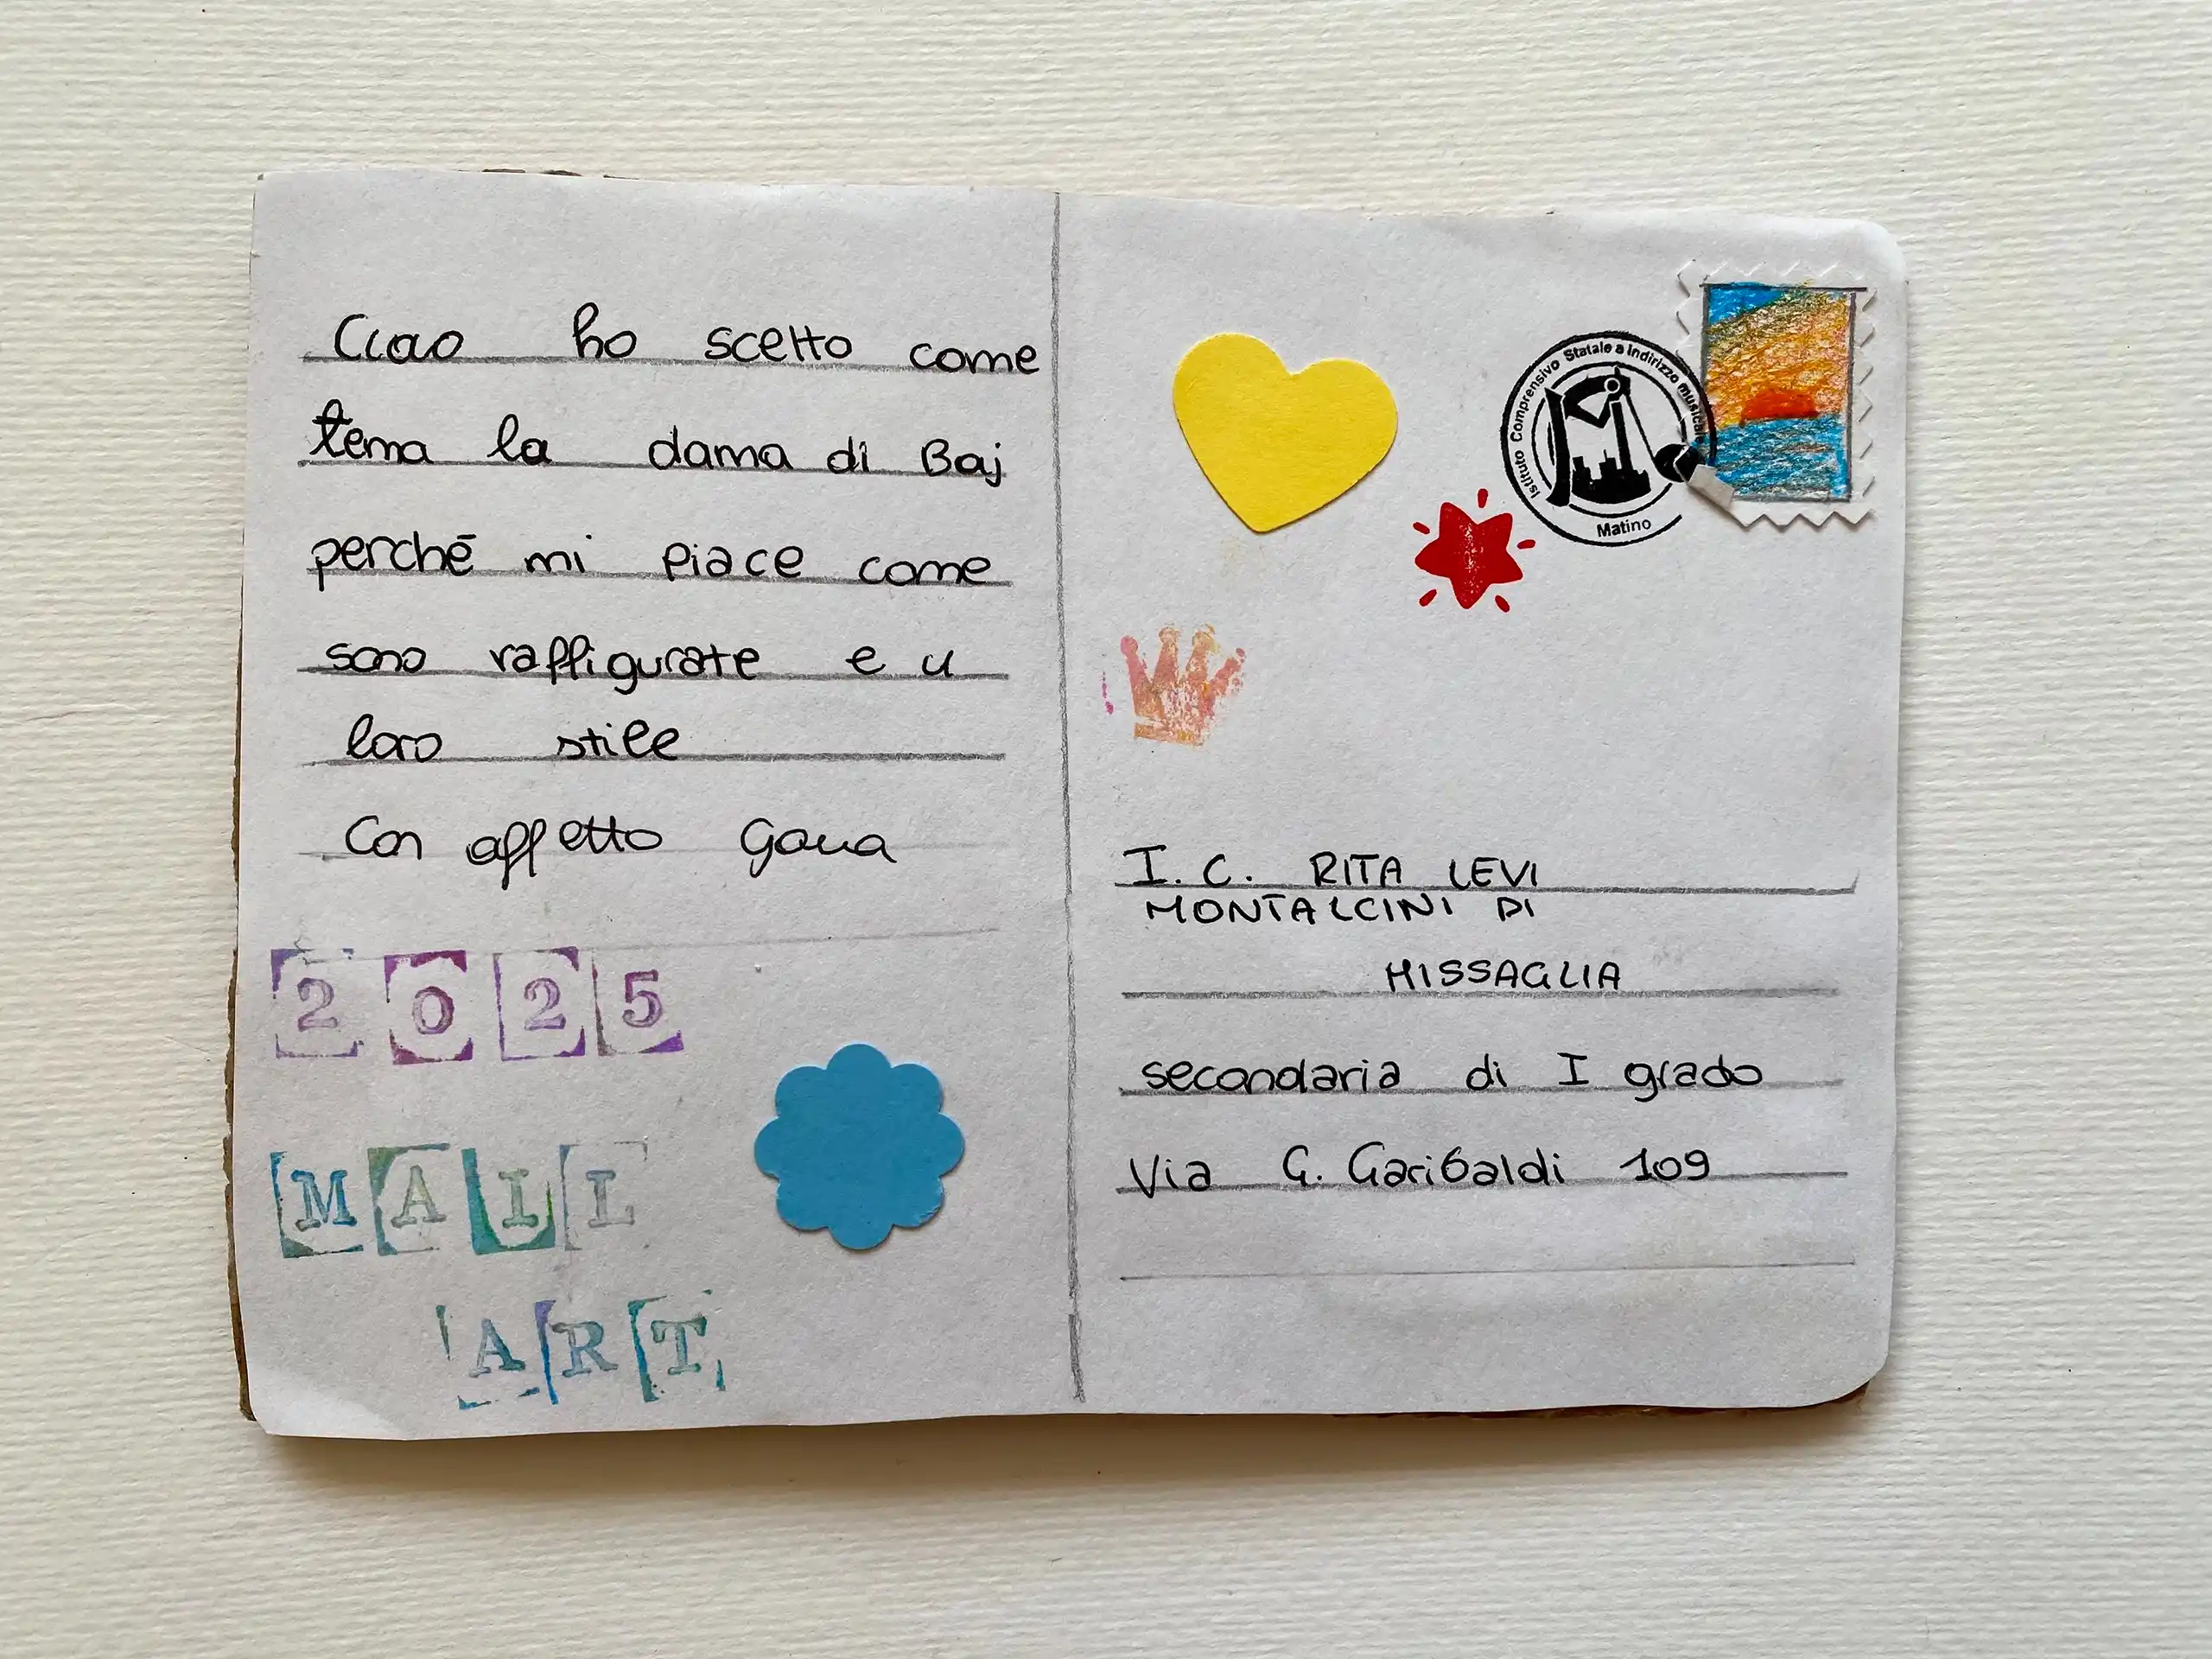 Ciao ho scelto come
tema la dama di Baj
perché mi piace come
sono raffigurate e il
loro stile
Con affetto Gaua
2025
MAIL
ART
Istituto Comprensivo Statale a indirizzo musicale
Matino
I. C. RITA LEVI
MONTALCINI DI
MISSAGLIA
secondaria di I grado
Via G. Garibaldi 109